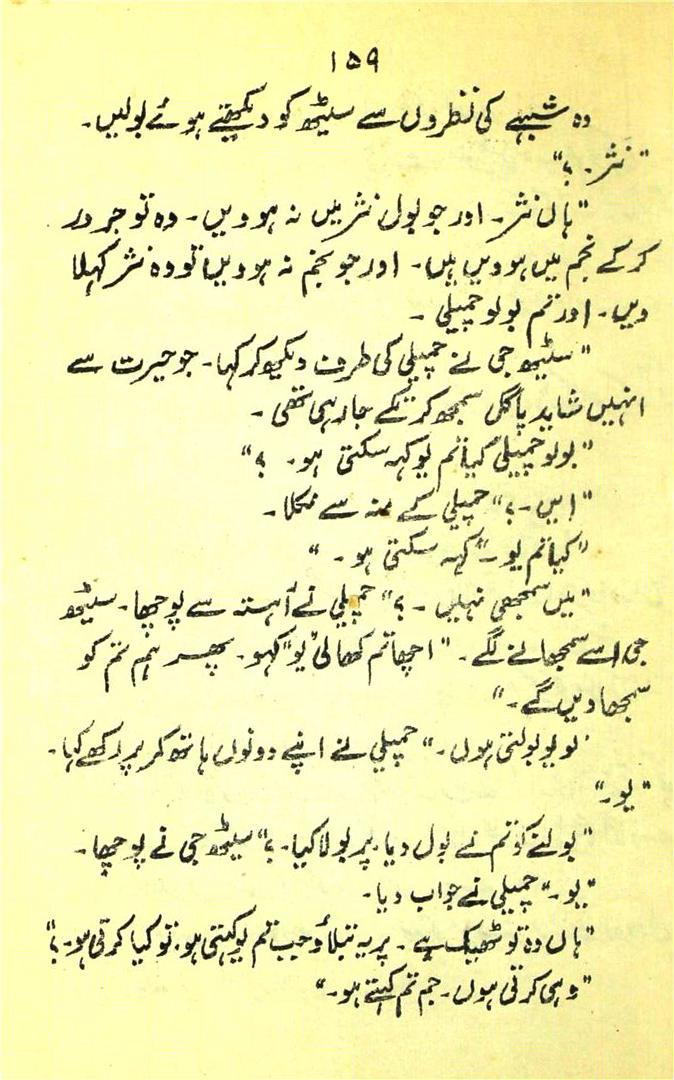 ۱۵۹
وہ شبہے کی نظروں سے سیٹھ کو دیکھتے ہوئے بولیں۔
"نثر۔ ؟"
"ہاں نثر۔ اور جو بول نثر میں نہ ہوویں۔ وہ تو جرور
کر کے نجم میں ہوویں ہیں۔ اور جو نجم نہ ہوویں تو وہ نثر کہلا
ویں۔ اور تم بولو چمپیلی ۔
"سیٹھ جی نے چمپیلی کی طرف دیکھ کر کہا۔ جو حیرت سے
انہیں شاید پاگل سمجھ کر تکے جا رہی تھی ۔
"بولو چمپیلی کیا تم یو کہہ سکتی ہو۔ ؟"
"ایں۔ ؟" چمپیلی کے منہ سے نکلا۔
"کیا تم یو۔" کہہ سکتی ہو۔ "
"میں سمجھی نہیں ۔ ؟" چمپیلی نے آہستہ سے پوچھا۔ سیٹھ
جی اسے سمجھانے لگے ۔ "اچھا تم کھالی "یو" کہو۔ پھر ہم تم کو
سمجھا دیں گے۔"
لو یو بولتی ہوں۔" چمپیلی نے اپنے دونوں ہاتھ کمر پر رکھے کہا۔
"یو۔"
"بولنے کو تم نے بول دیا۔ پر بولا کیا۔ ؟" سیٹھ جی نے پوچھا۔
"یو۔" چمپیلی نے جواب دیا۔
"ہاں وہ تو ٹھیک ہے ۔ پر یہ بتلاؤ جب تم یو کہتی ہو۔ تو کیا کرتی ہو۔ ؟"
"وہی کرتی ہوں۔ جم تم کہتے ہو۔"